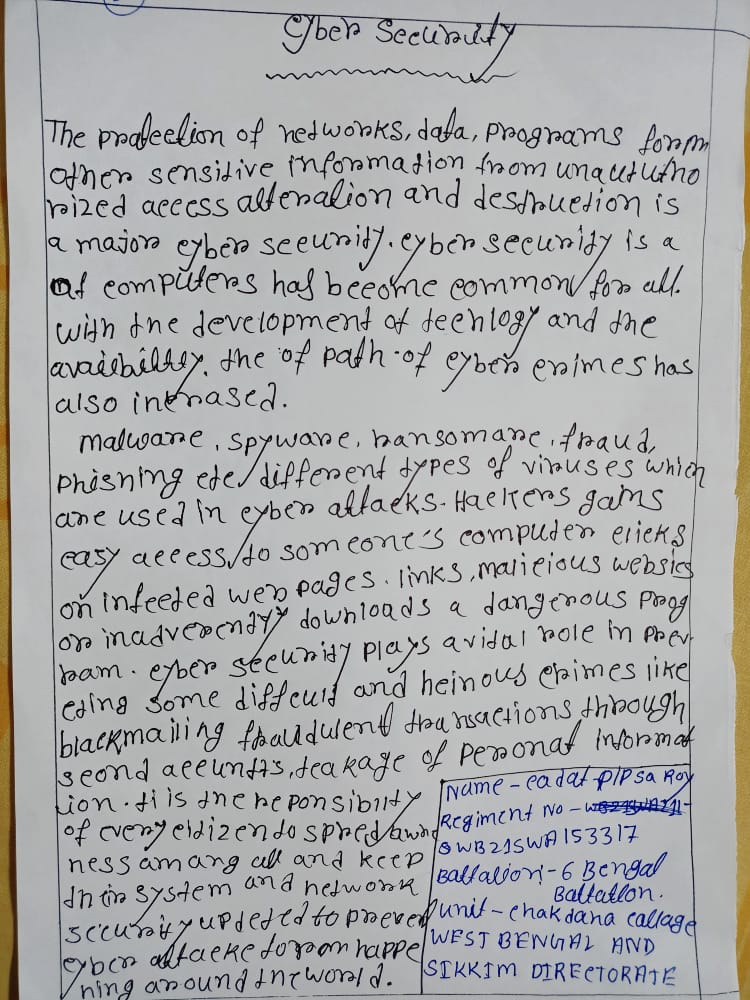 Cyber Security
The protection of networks, data, programs form
other sensitive information from unaututho
rized access alteration and destruction is
a major cyber security. cyber security is a
of computers has become common for all.
with the development of techlogy and the
availbility. the of path of cyber crimes has
also incrased.
malware, spyware, ransomare, fraud,
phishing etc different types of viruses which
are used in cyber attacks. Hackers gains
easy access to someone's computer clicks
on infected web pages. links, malicious websies
or inadverently downloads a dangerous prog
ram. cyber security plays a vidal role in prev
eting some difficult and heinous crimes like
blackmailing fraudulent transactions through
second accunts, leakage of peronal informat
ion. ti is the reponsiblity
of every citizen to spred awar
ness amang all and keep
their system and network
security updeted to prevent
cyber attacke form happe
ning around the world.
Name - cadat p/p sa Roy
Regiment No -
WB21SWA153317
Battalion - 6 Bengal
Battallon.
unit - chakdana callage
WEST BENGAL AND
SIKKIM DIRECTORATE